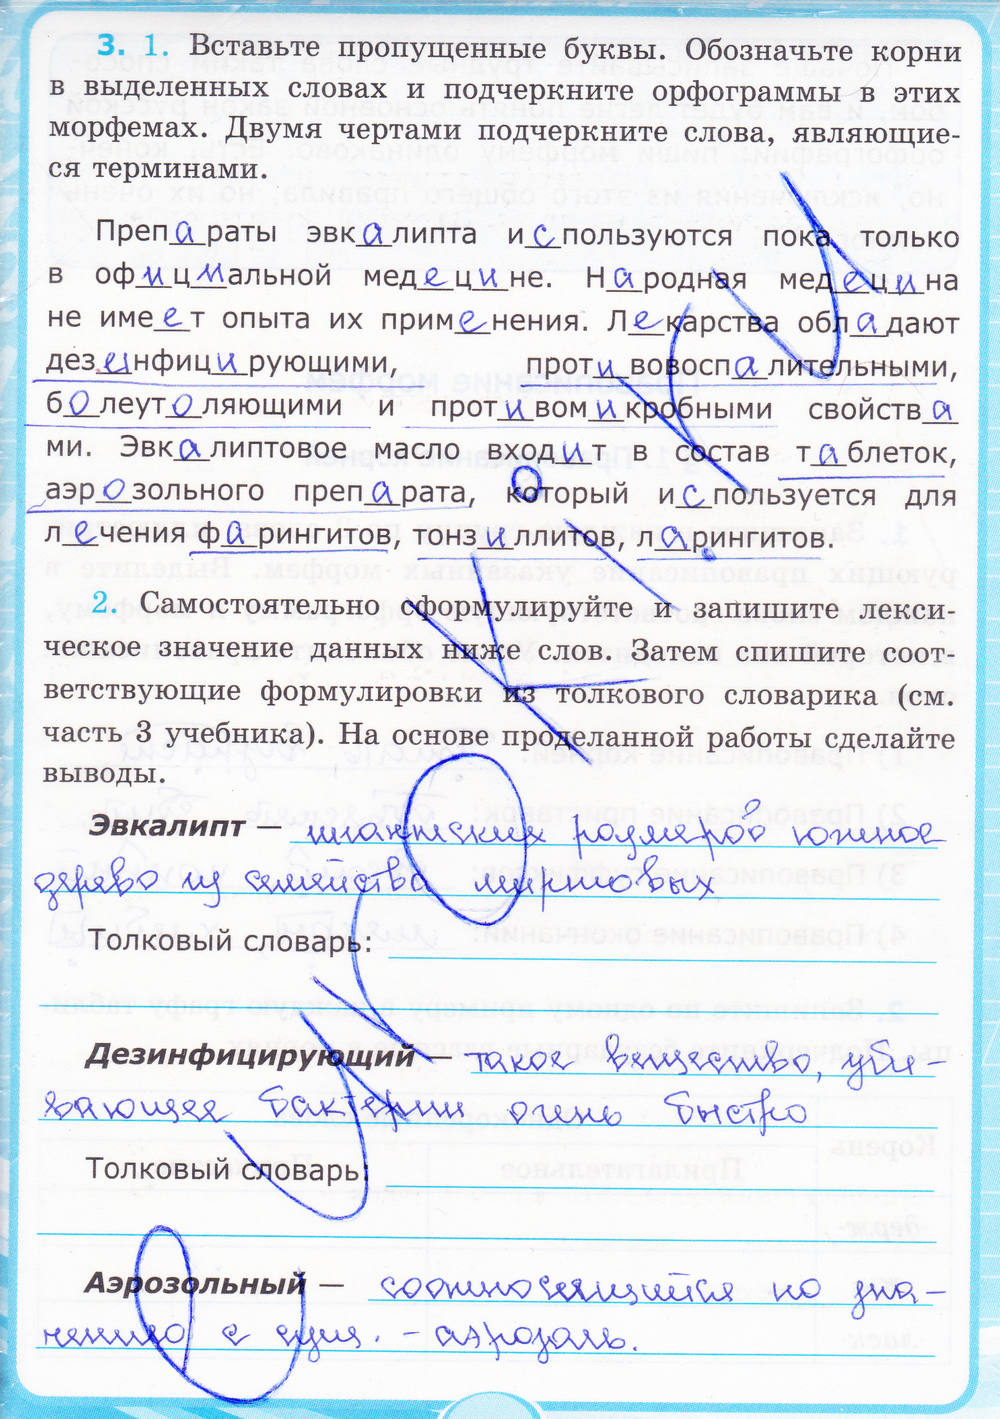 3. 1. Вставьте пропущенные буквы. Обозначьте корни
в выделенных словах и подчеркните орфограммы в этих
морфемах. Двумя чертами подчеркните слова, являющие-
ся терминами.
Препараты эвкалипта используются пока только
в официальной медецине. Народная медецина
не имеет опыта их применения. Лекарства обладают
дезинфицирующими, противовоспалительными,
болеутоляющими и противомикробными свойства
ми. Эвкалиптовое масло входит в состав таблеток,
аэрозольного препарата, который используется для
лечения фарингитов, тонзиллитов, ларингитов.
2. Самостоятельно сформулируйте и запишите лекси-
ческое значение данных ниже слов. Затем спишите соот-
ветствующие формулировки из толкового словарика (см.
часть 3 учебника). На основе проделанной работы сделайте
выводы.
Эвкалипт — гигантских размеров южное
дерево из семейства миртовых
Толковый словарь:
Дезинфицирующий – такое вещество, уби-
вающее бактерии очень быстро
Толковый словарь:
Аэрозольный — соотносящийся по зна-
чению с сущ. - аэрозоль.